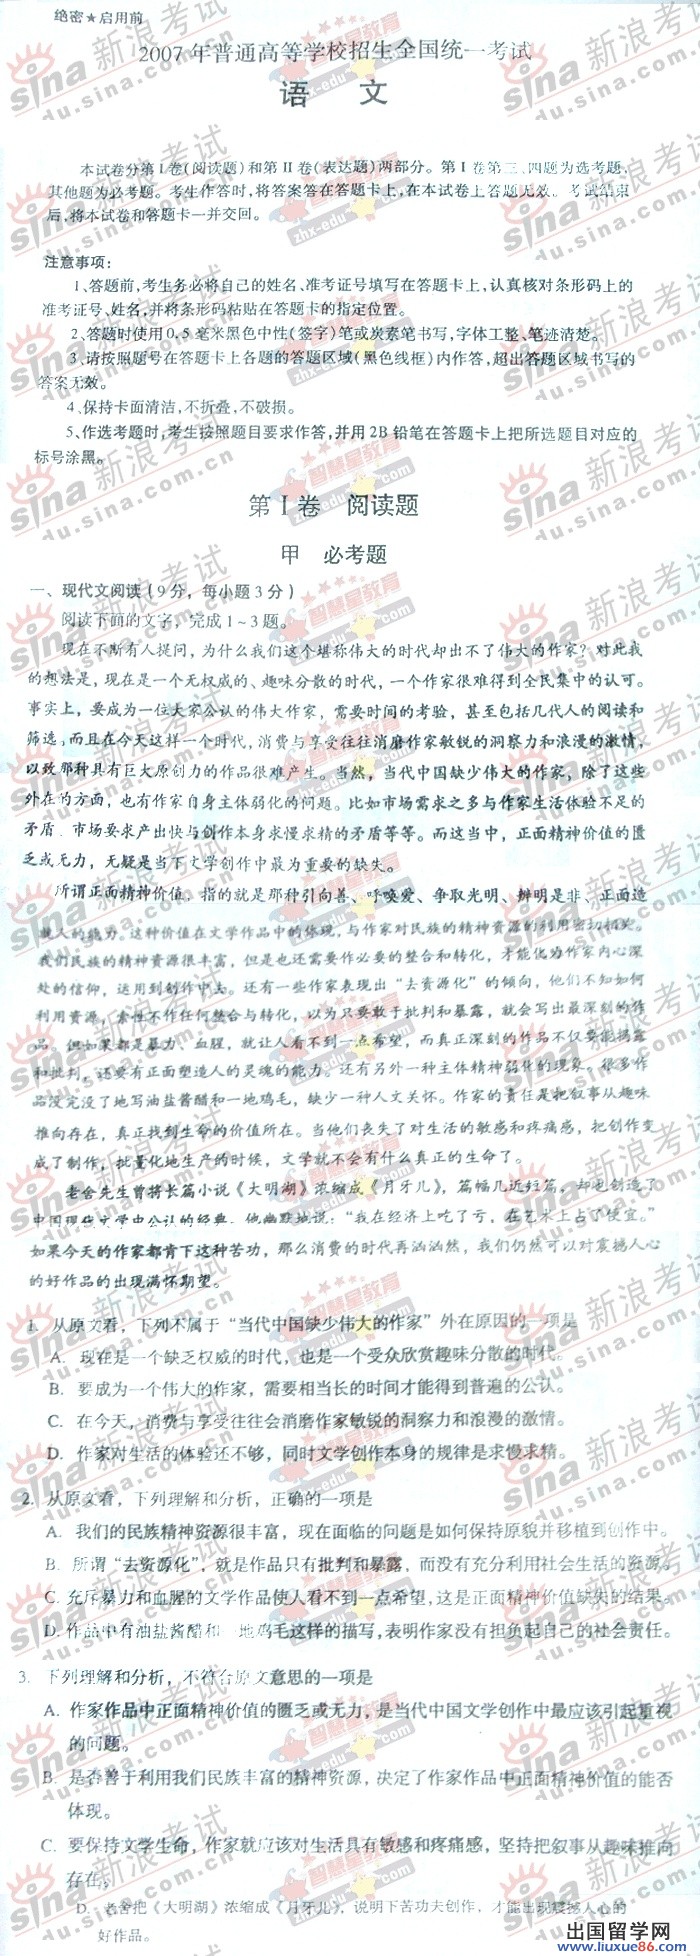 绝密★启用前
2007年普通高等学校招生全国统一考试
语 文
本试卷分第Ⅰ卷(阅读题)和第Ⅱ卷(表达题)两部分。第Ⅰ卷第三、四题为选考题,
其他题为必考题。考生作答时,将答案答在答题卡上,在本试卷上答题无效。考试结束
后,将本试卷和答题卡一并交回。
注意事项:
1、答题前,考生务必将自己的姓名、准考证号填写在答题卡上,认真核对条形码上的
准考证号、姓名,并将条形码粘贴在答题卡的指定位置。
2、答题时使用0.5毫米黑色中性(签字)笔或炭素笔书写,字体工整、笔迹清楚。
3、请按照题号在答题卡上各题的答题区域(黑色线框)内作答,超出答题区域书写的
答案无效。
4、保持卡面清洁,不折叠,不破损。
5、作选考题时,考生按照题目要求作答,并用2B铅笔在答题卡上把所选题目对应的
标号涂黑。
第Ⅰ卷 阅读题
甲 必考题
一、现代文阅读(9分,每小题3分)
阅读下面的文字,完成1~3题。
现在不断有人提问,为什么我们这个堪称伟大的时代却出不了伟大的作家?对此我
的想法是,现在是一个无权威的、趣味分散的时代,一个作家很难得到全民集中的认可。
事实上,要成为一位大家公认的伟大作家,需要时间的考验,甚至包括几代人的阅读和
筛选。而且在今天这样一个时代,消费与享受往往消磨作家敏锐的洞察力和浪漫的激情,
以致那种具有巨大原创力的作品很难产生。当然,当代中国缺少伟大的作家,除了这些
外在的方面,也有作家自身主体弱化的问题。比如市场需求之多与作家生活体验不足的
矛盾,市场要求产出快与创作本身求慢求精的矛盾等等。而这当中,正面精神价值的匮
乏或无力,无疑是当下文学创作中最为重要的缺失。
所谓正面精神价值,指的就是那种引向善、呼唤爱、争取光明、辨明是非、正面造
就人的能力。这种价值在文学作品中的体现,与作家对民族的精神资源的利用密切相关。
我们民族的精神资源很丰富,但是也还需要作必要的整合和转化,才能化为作家内心深
处的信仰,运用到创作中去。还有一些作家表现出“去资源化”的倾向,他们不知如何
利用资源,索性不作任何整合与转化,以为只要敢于批判和暴露,就会写出最深刻的作
品。但如果都是暴力、血腥,就让人看不到一点希望,而真正深刻的作品不仅要能揭露
和批判,还要有正面塑造人的灵魂的能力。还有另外一种主体精神弱化的现象,很多作
品没完没了地写油盐酱醋和一地鸡毛,缺少一种人文关怀。作家的责任是把叙事从趣味
推向存在,真正找到生命的价值所在。当他们丧失了对生活的敏感和疼痛感,把创作变
成了制作,批量化地生产的时候,文学就不会有什么真正的生命了。
老舍先生曾将长篇小说《大明湖》浓缩成《月牙儿》,篇幅几近短篇,却也创造了
中国现代文学中公认的经典。他幽默地说:“我在经济上吃了亏,在艺术上占了便宜。”
如果今天的作家都肯下这种苦功,那么消费的时代再汹汹然,我们仍然可以对震撼人心
的好作品的出现满怀期望。
1. 从原文看,下列不属于“当代中国缺少伟大的作家”外在原因的一项是
A. 现在是一个缺乏权威的时代,也是一个受众欣赏趣味分散的时代。
B. 要成为一个伟大的作家,需要相当长的时间才能得到普遍的公认。
C. 在今天,消费与享受往往会消磨作家敏锐的洞察力和浪漫的激情。
D. 作家对生活的体验还不够,同时文学创作本身的规律是求慢求精。
2. 从原文看,下列理解和分析,正确的一项是
A. 我们的民族精神资源很丰富,现在面临的问题是如何保持原貌并移植到创作中。
B. 所谓“去资源化”,就是作品只有批判和暴露,而没有充分利用社会生活的资源。
C. 充斥暴力和血腥的文学作品使人看不到一点希望,这是正面精神价值缺失的结果。
D. 作品中有油盐酱醋和一地鸡毛这样的描写,表明作家没有担负起自己的社会责任。
3. 下列理解和分析,不符合原文意思的一项是
A. 作家作品中正面精神价值的匮乏或无力,是当代中国文学创作中最应该引起重视
的问题。
B. 是否善于利用我们民族丰富的精神资源,决定了作家作品中正面精神价值的能否
体现。
C. 要保持文学生命,作家就应该对生活具有敏感和疼痛感,坚持把叙事从趣味推向
存在。
D. 老舍把《大明湖》浓缩成《月牙儿》,说明下苦功夫创作,才能出现震撼人心的
好作品。
出国留学网
www.liuxue86.com